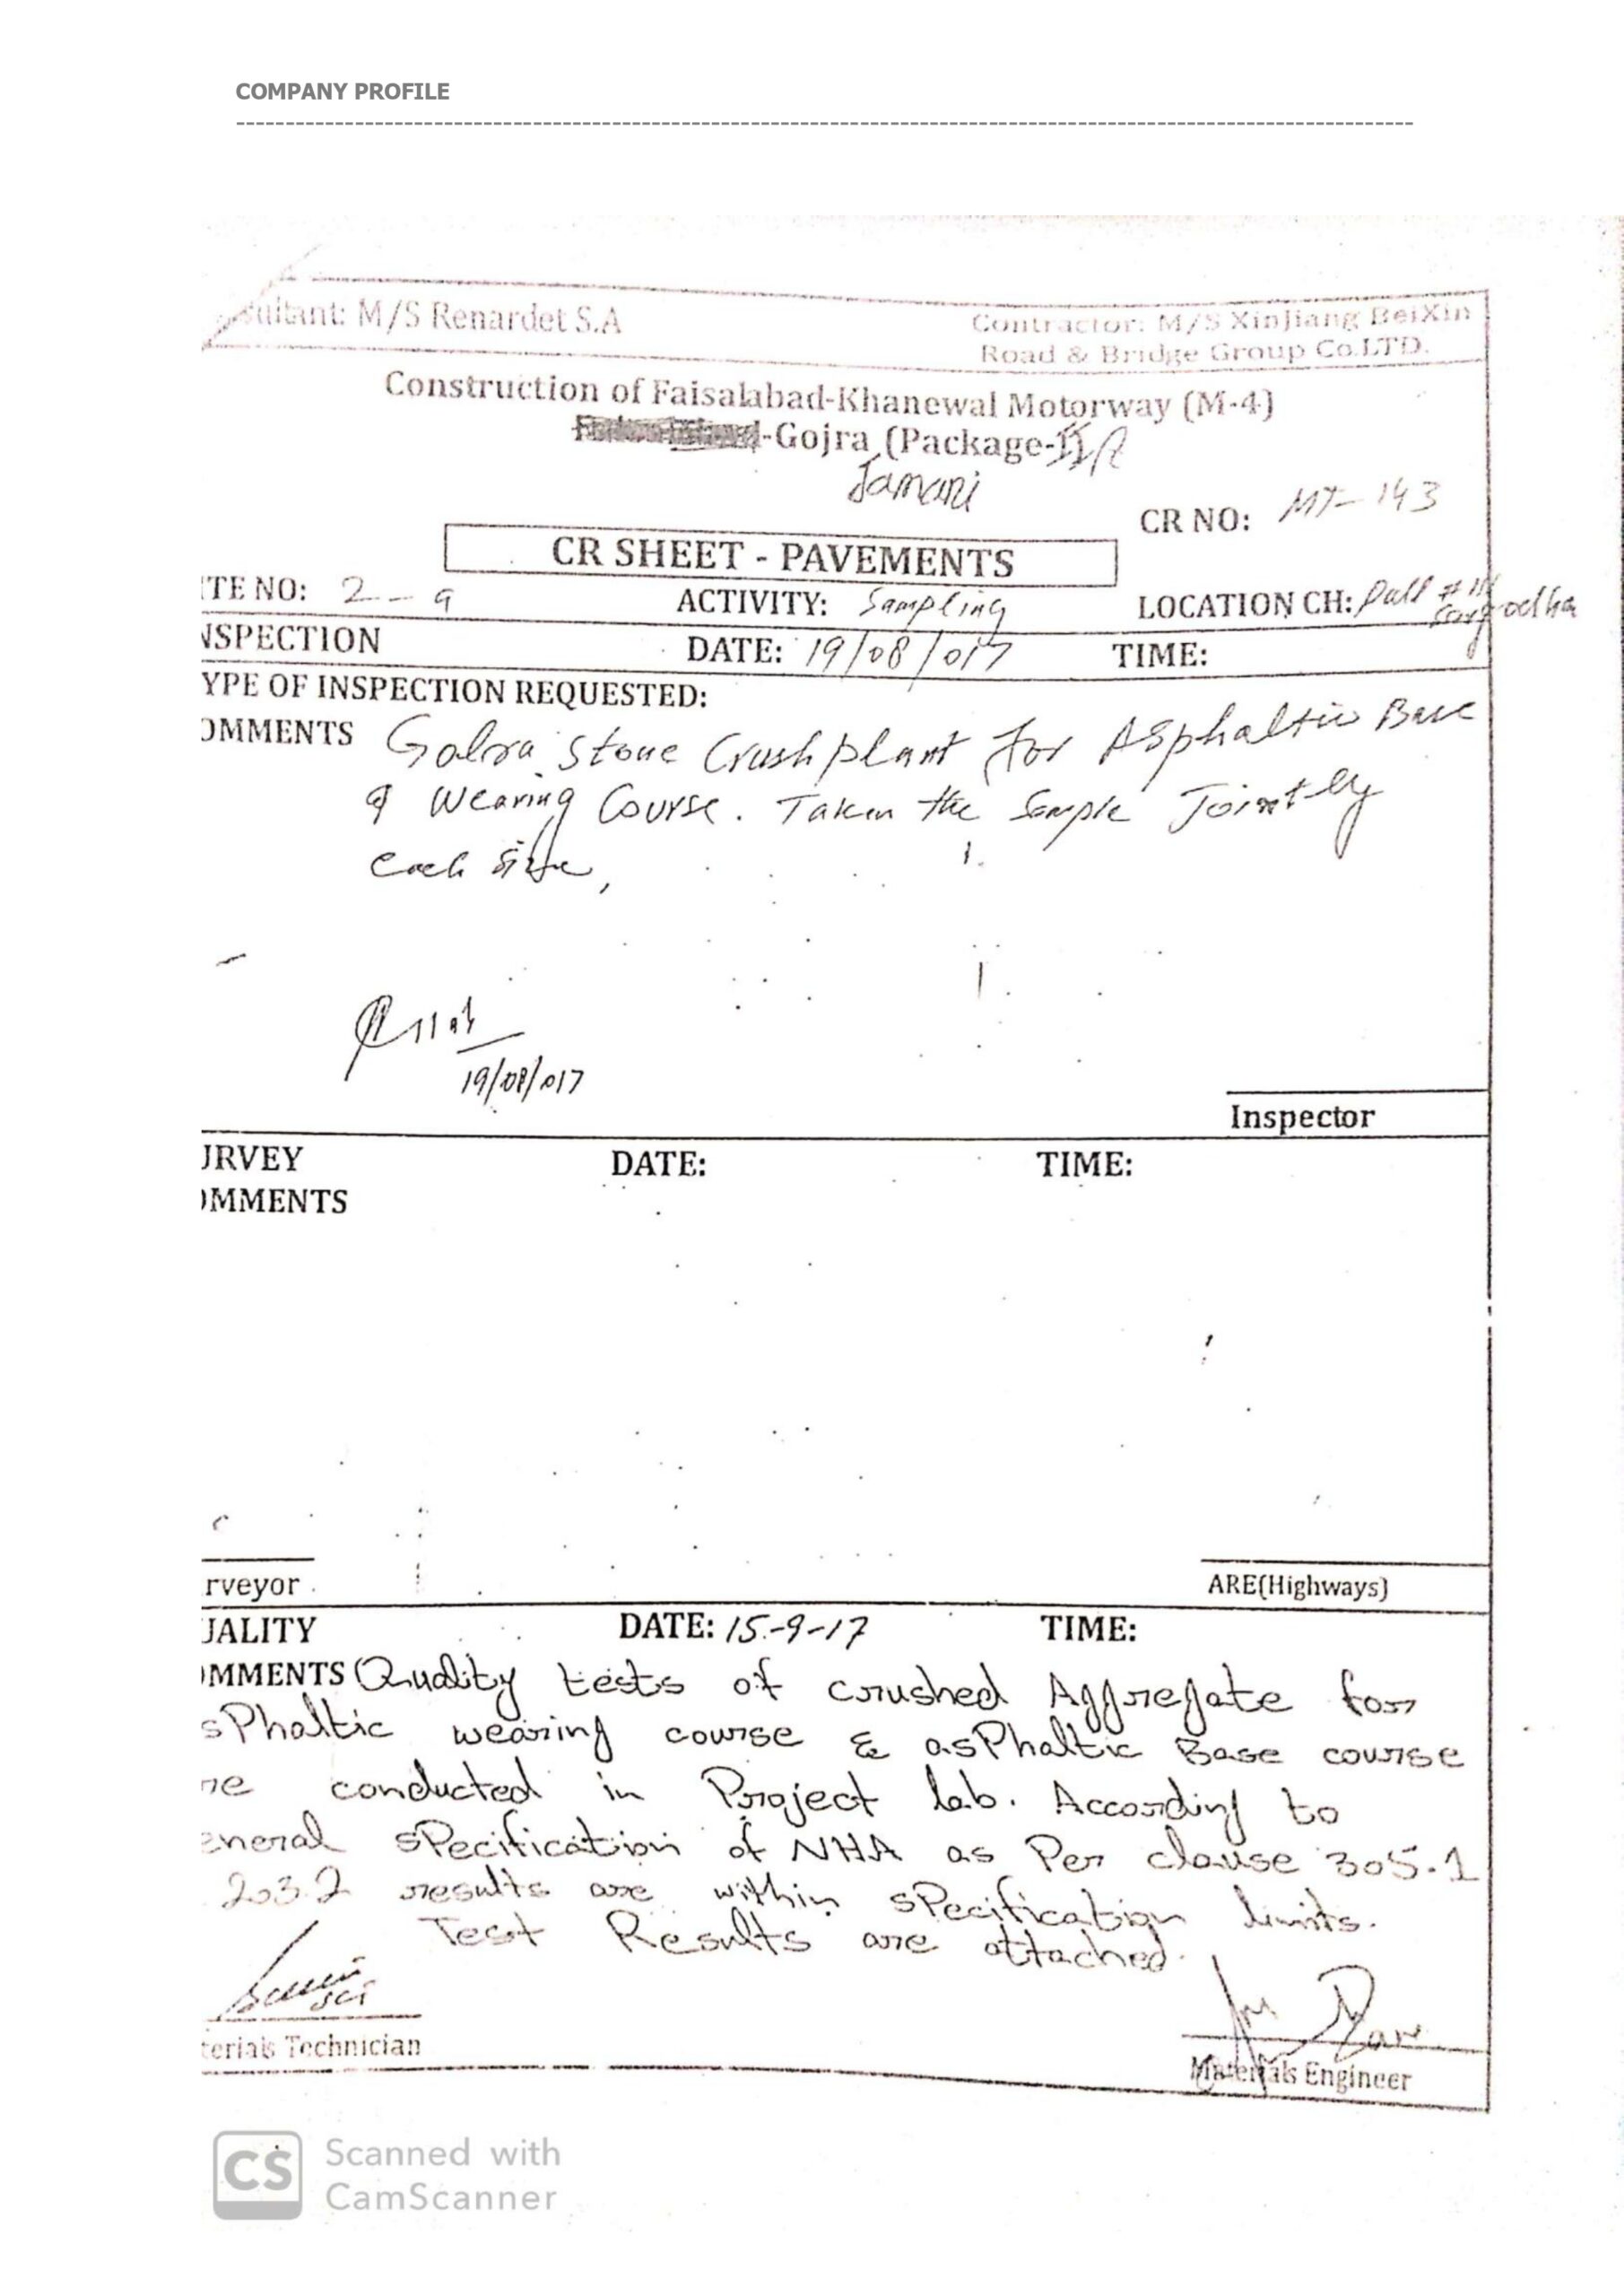 COMPANY PROFILE
sultant: M/S Renardet S.A
Contractor: M/S XinJiang BeiXin
Road & Bridge Group Co.LTD.
Construction of Faisalabad-Khanewal Motorway (M-4)
-Gojra (Package-II
Jamani
CR NO: MT-143
CR SHEET - PAVEMENTS
TE NO: 2-9 ACTIVITY: Sampling LOCATION CH:
NSPECTION DATE: 19/08/017 TIME:
YPE OF INSPECTION REQUESTED:
OMMENTS Golra Stone Crush plant for Asphaltic Base
& Wearing Course. Taken the Sample Jointly
each size,
19/08/017
Inspector
URVEY DATE: TIME:
OMMENTS
rveyor
ARE(Highways)
UALITY DATE: 15-9-17 TIME:
OMMENTS Quality tests of crushed Aggregate for
sPhaltic wearing course & asPhaltic Base course
re conducted in Project lab. According to
eneral sPecification of NHA as Per clause 305.1
203.2 results are within sPecification limits.
Test Results are attached.
terials Technician
Materials Engineer
CS Scanned with
CamScanner